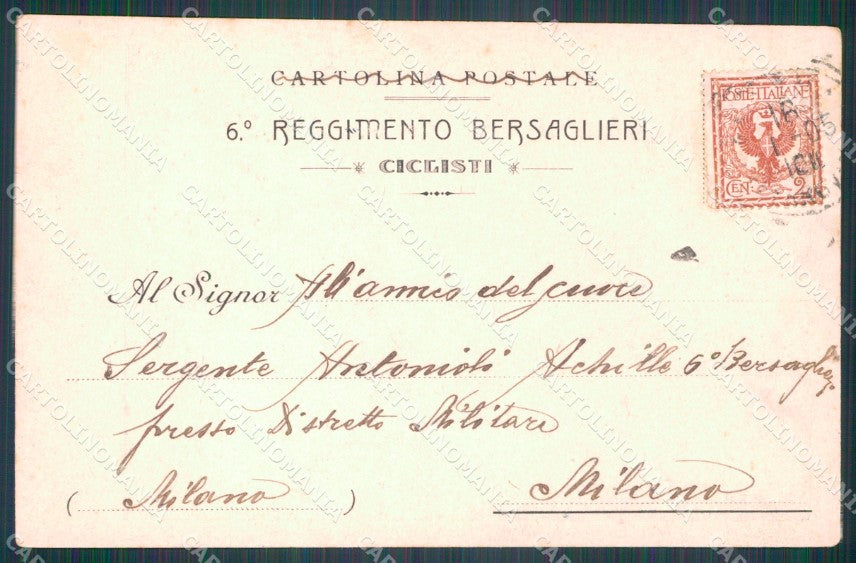 CARTOLINA POSTALE
6.º REGGIMENTO BERSAGLIERI
CICLISTI
POSTE ITALIANE
CEN. 2
Al Signor del cuore
Sergente Antonioli Achille 6º Bersaglieri
presso Distretto Militare
(Milano) Milano
CARTOLINOMANIA